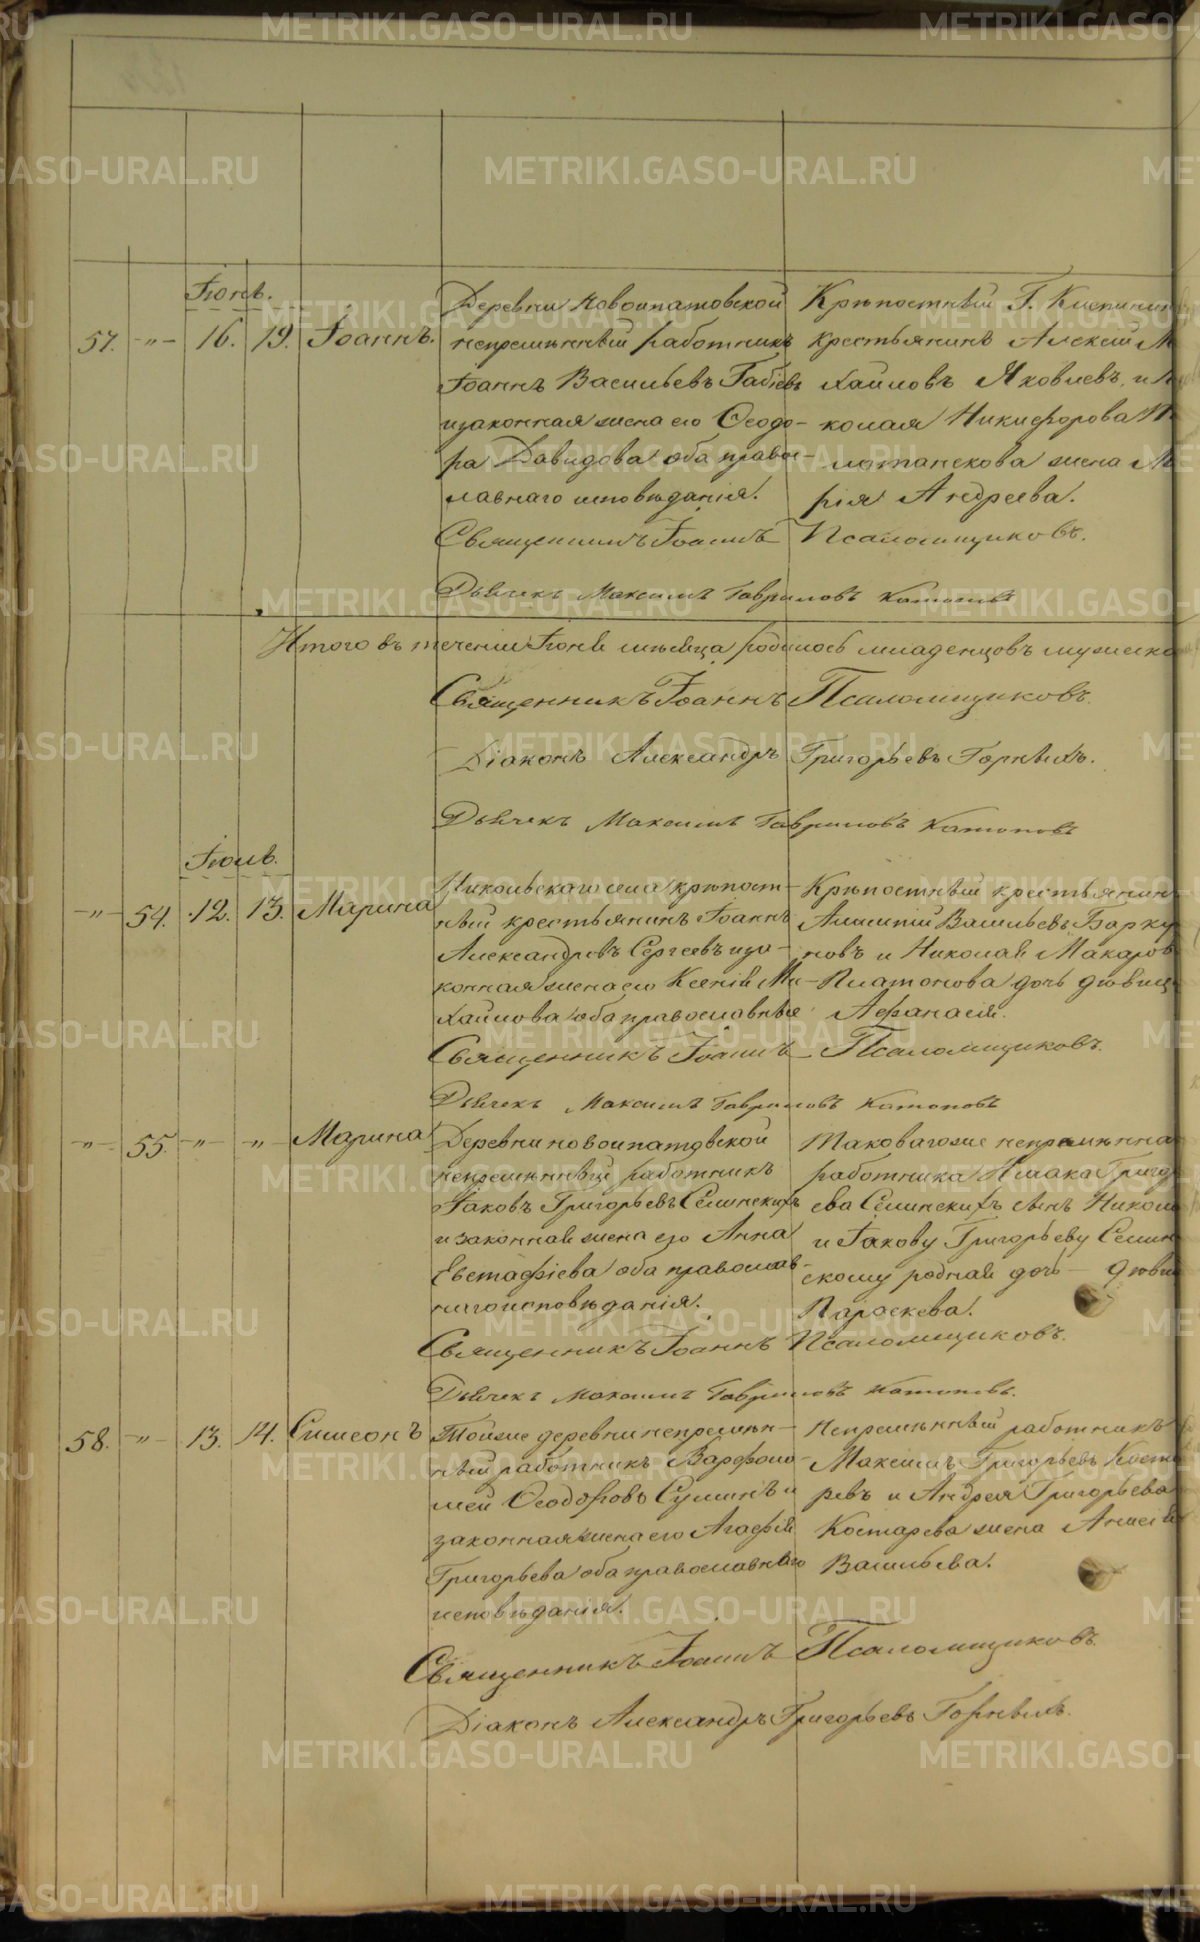 Іюнь.
57. -"- 16. 19. Іоаннъ.
Деревни Новоипатовской
непремѣнный работникъ
Іоаннъ Васильевъ
и законная жена его Ѳеодо-
ра Давидова оба правос-
лавнаго исповѣданія.
Крѣпостный Г.
крестьянинъ Алексій М
хайловъ Яковлевъ, и Н
колая Никифорова
жена Ма
рія Андреева.
Священникъ Іоаннъ Псаломщиковъ.
Дьячекъ Максимъ Гавриловъ Катоповъ
Итого въ теченіи Іюня мѣсяца родилось младенцовъ мужеска
Священникъ Іоаннъ Псаломщиковъ.
Діаконъ Александръ Григорьевъ Горныхъ.
Дьячекъ Максимъ Гавриловъ Катоповъ
Іюль.
-"- 54. 12. 13. Марина
Никольскаго села крѣпост-
ный крестьянинъ Іоаннъ
Александровъ Сергеевъ и за-
конная жена его Ксенія Ми-
хайлова оба православные
Крѣпостный крестьянин
Васильевъ Барку
новъ и Николая Макаров
Платонова дочь дѣвиц
Афанасія.
Священникъ Іоаннъ Псаломщиковъ.
Дьячекъ Максимъ Гавриловъ Катоповъ
-"- 55. -"- -"- Марина
Деревни новоипатовской
непремѣнный работникъ
Іаковъ Григорьевъ Селинскихъ
и законная жена его Анна
Евстафіева оба православ-
наго исповѣданія.
Таковагоже непремѣнна
работника Исаака Григор
ева Селинскихъ сынъ Никол
и Іакову Григорьеву Селин
скому родная дочь дѣви
Параскева.
Священникъ Іоаннъ Псаломщиковъ.
Дьячекъ Максимъ Гавриловъ Катоповъ.
58. -"- 13. 14. Симеонъ
Тойже деревни непремѣн-
ный работникъ Варфоло-
мей Ѳеодоровъ Сулинъ и
законная жена его Агафія
Григорьева оба православнаго
исповѣданія.
Непремѣнный работникъ
Максимъ Григорьевъ Коста
ревъ и Андрея Григорьева
Костарева жена Анисія
Васильева.
Священникъ Іоаннъ Псаломщиковъ.
Діаконъ Александръ Григорьевъ Горныхъ.
METRIKI.GASO-URAL.RU